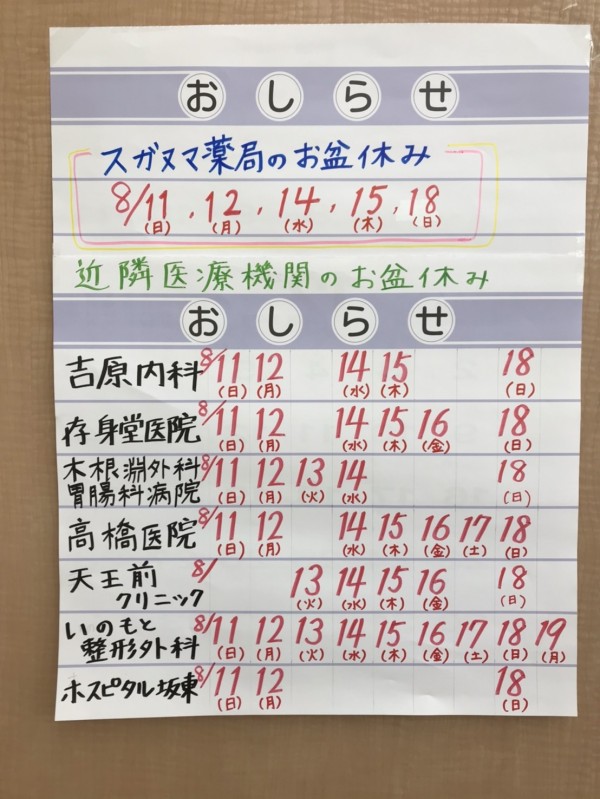 おしらせ
スガヌマ薬局のお盆休み
8/11(日), 12(月), 14(水), 15(木), 18(日)
近隣医療機関のお盆休み
おしらせ
吉原内科 8/11(日) 12(月) 14(水) 15(木) 18(日)
存身堂医院 8/11(日) 12(月) 14(水) 15(木) 16(金) 18(日)
木根淵外科胃腸科病院 8/11(日) 12(月) 13(火) 14(水) 18(日)
高橋医院 8/11(日) 12(月) 14(水) 15(木) 16(金) 17(土) 18(日)
天王前クリニック 8/13(火) 14(水) 15(木) 16(金) 18(日)
いのもと整形外科 8/11(日) 12(月) 13(火) 14(水) 15(木) 16(金) 17(土) 18(日) 19(月)
ホスピタル坂東 8/11(日) 12(月) 18(日)